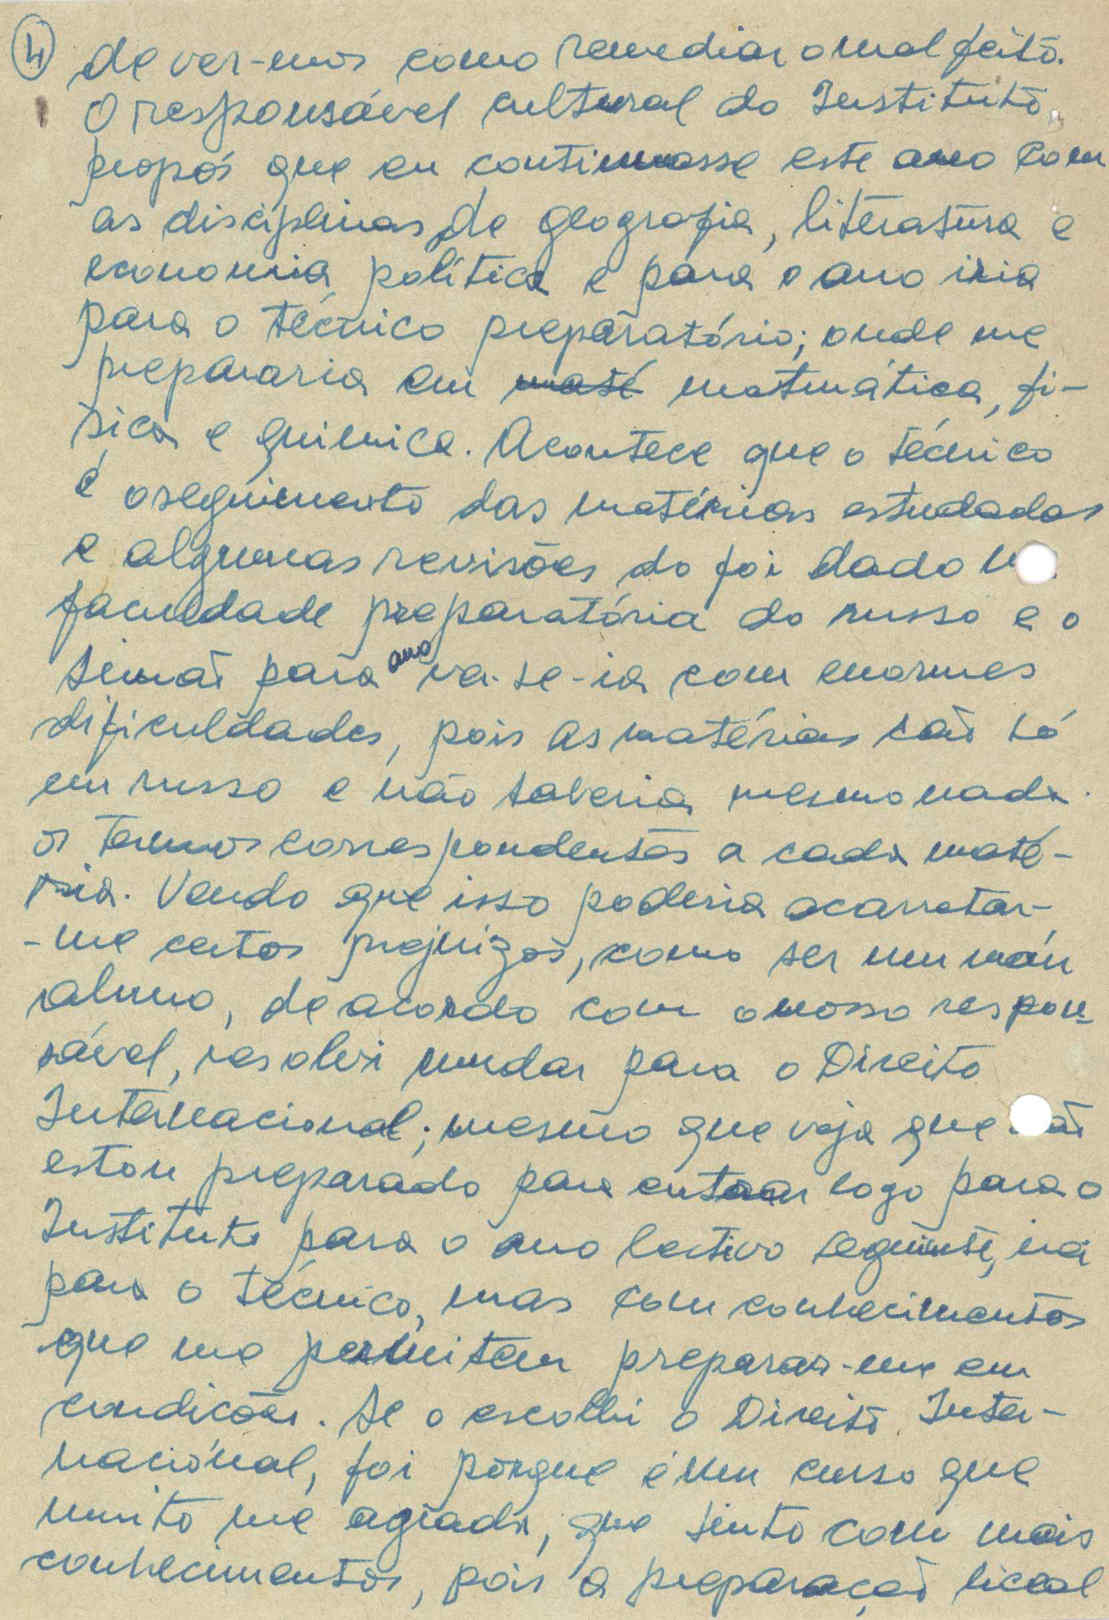 4
de ver-mos como remediar o mal feito.
O responsável cultural do Instituto,
propós que eu continuasse este ano com
as disciplinas de geografia, literatura e
economia política e para o ano iria
para o técnico preparatório; onde me
prepararia em maté matmática, fi-
sica e quimica. Acontece que o técnico
é o seguimento das matérias estudadas
e algumas revisões do foi dado
faculdade preparatória do russo e o
para ano va-se-ia com enormes
dificuldades, pois as matérias são só
em russo e não saberia mesmo nada
os termos correspondentes a cada maté-
ria. Vendo que isso poderia acarretar-
-me certos prejuizos, como ser um máu
aluno, de acordo com o nosso respon-
sável, resolvi mudar para o Direito
Internacional; mesmo que veja que
estou preparado para entrar logo para o
Instituto para o ano lectivo seguinte, irei
para o técnico, mas com conhecimentos
que me permitem preparar-me em
condicões. Se o escolhi o Direito Inter-
nacional, foi porque é um curso que
muito me agrada, que sinto com mais
conhecimentos, pois a preparação liceal